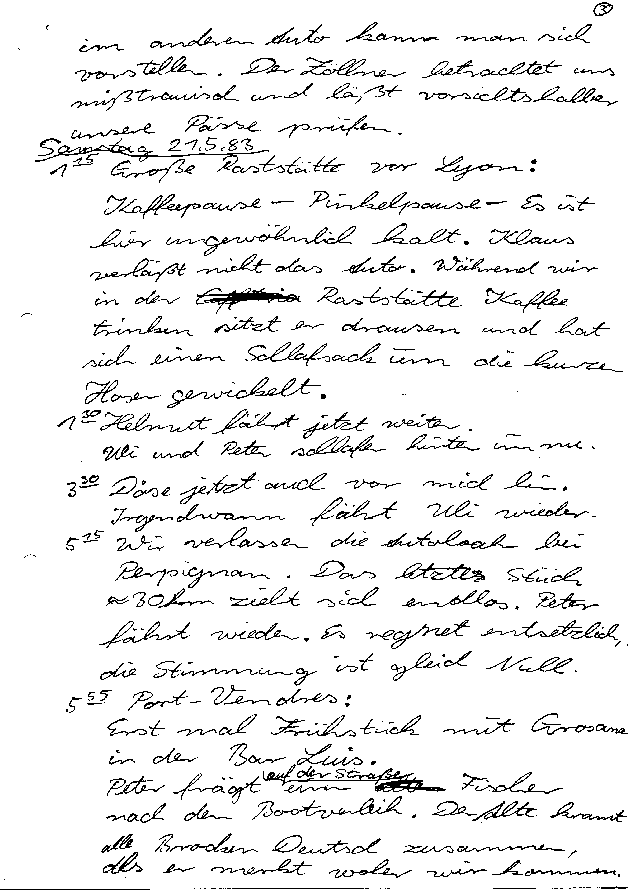 3
im anderen Auto kann man sich
vorstellen. Der Zöllner betrachtet uns
mißtrauisch und läßt vorsichtshalber
unsere Pässe prüfen.
Samstag 21.5.83
1 15 Große Raststätte vor Lyon:
Kaffeepause - Pinkelpause - Es ist
hier ungewöhnlich kalt. Klaus
verläßt nicht das Auto. Während wir
in der Raststätte Kaffee
trinken sitzt er drausen und hat
sich einen Schlafsack um die kurze
Hosen gewickelt.
1 30 Helmut fährt jetzt weiter.
Uli und Peter schlafen hinten
3 30 Döse jetzt auch vor mich hin.
Irgendwann fährt Uli wieder.
5 15 Wir verlassen die Autobahn bei
Perpignan. Das letzte Stück
≈30km zieht sich endlos. Peter
fährt wieder. Es regnet entsetzlich,
die Stimmung ist gleich Null.
5 55 Port-Vendres:
Erst mal Frühstück mit
in der Bar Luis.
auf der Straße
Peter frägt ein Fischer
nach dem Bootverleih. Der Alte kramt
alle Brocken Deutsch zusammen,
als er merkt woher wir kommen.